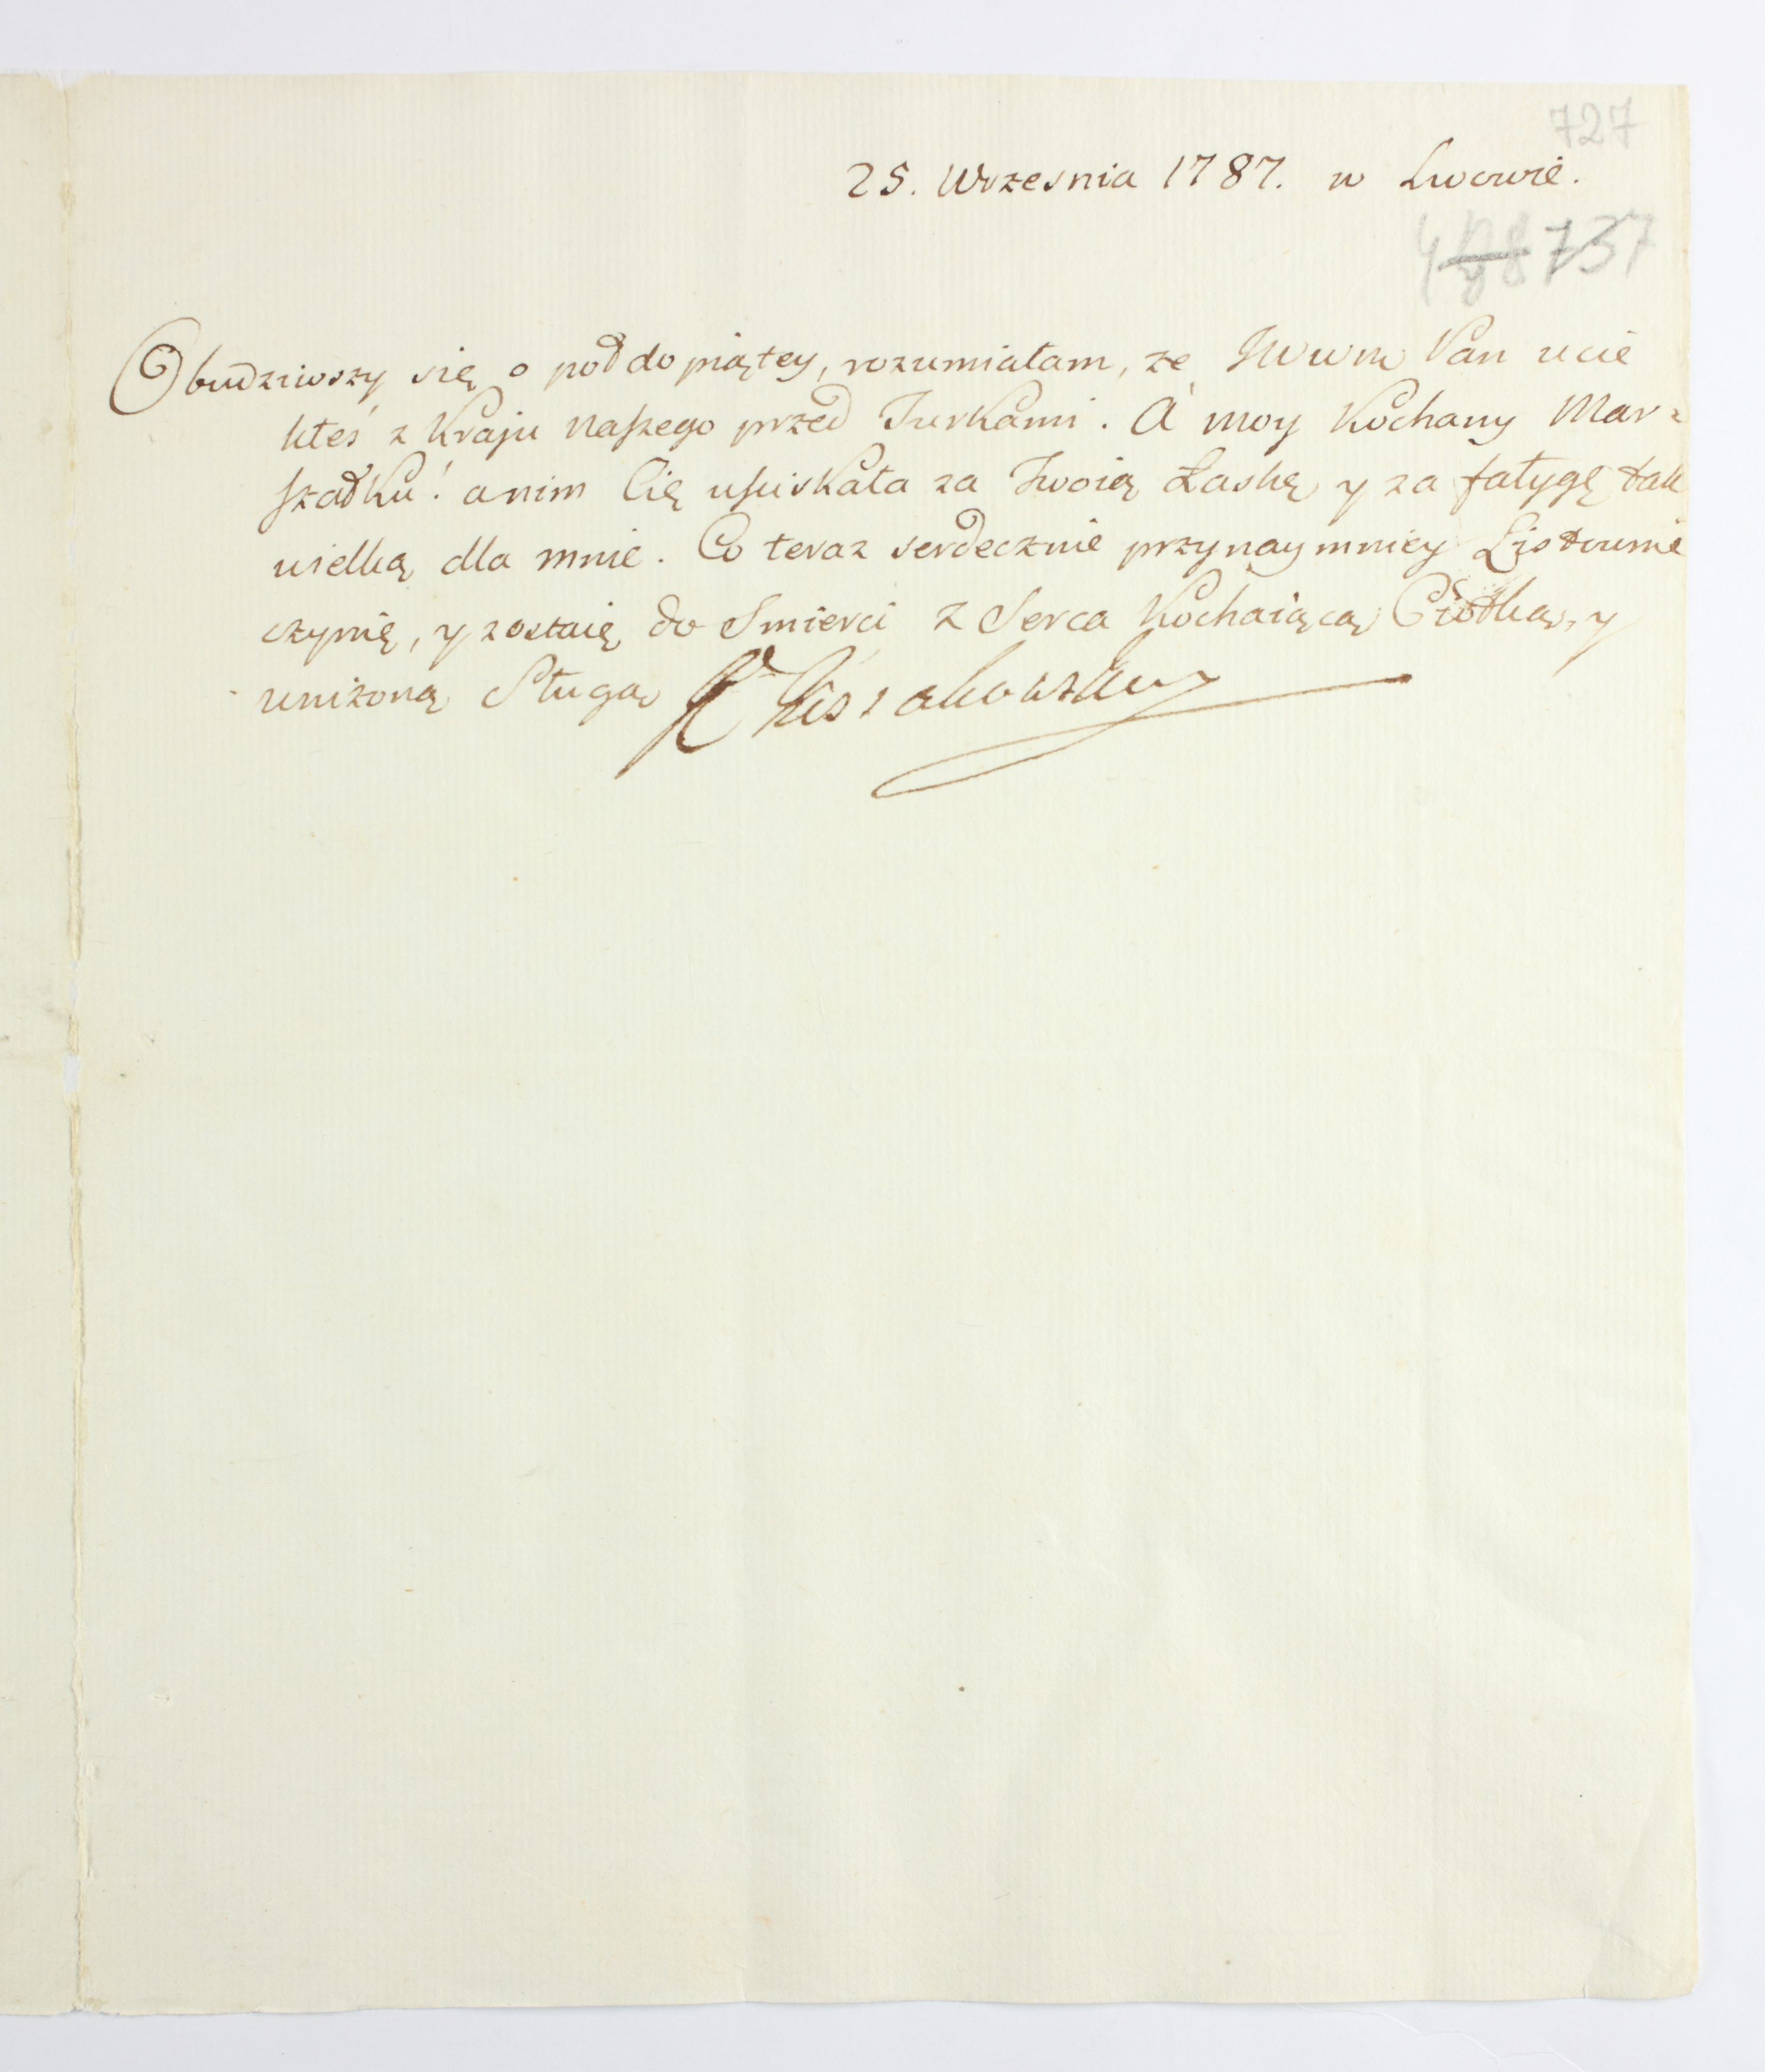 727
25. Wrzesnia 1787. w Lwowie.
737
Obudziwszy się o poł do piątey, rozumiałam, że JWWM Pan ucie
kłeś z Kraju naszego przed Turkami. A moy Kochany Mar=
szałku! anim Cię uściskała za Twoią Łaskę y za fatygę tak
wielką dla mnie. Co teraz serdecznie przynaymniey Listownie
czynię, y zostaię do Smierci z Serca Kochaiącą Ciotką, y
uniżoną Sługą Kossakowska